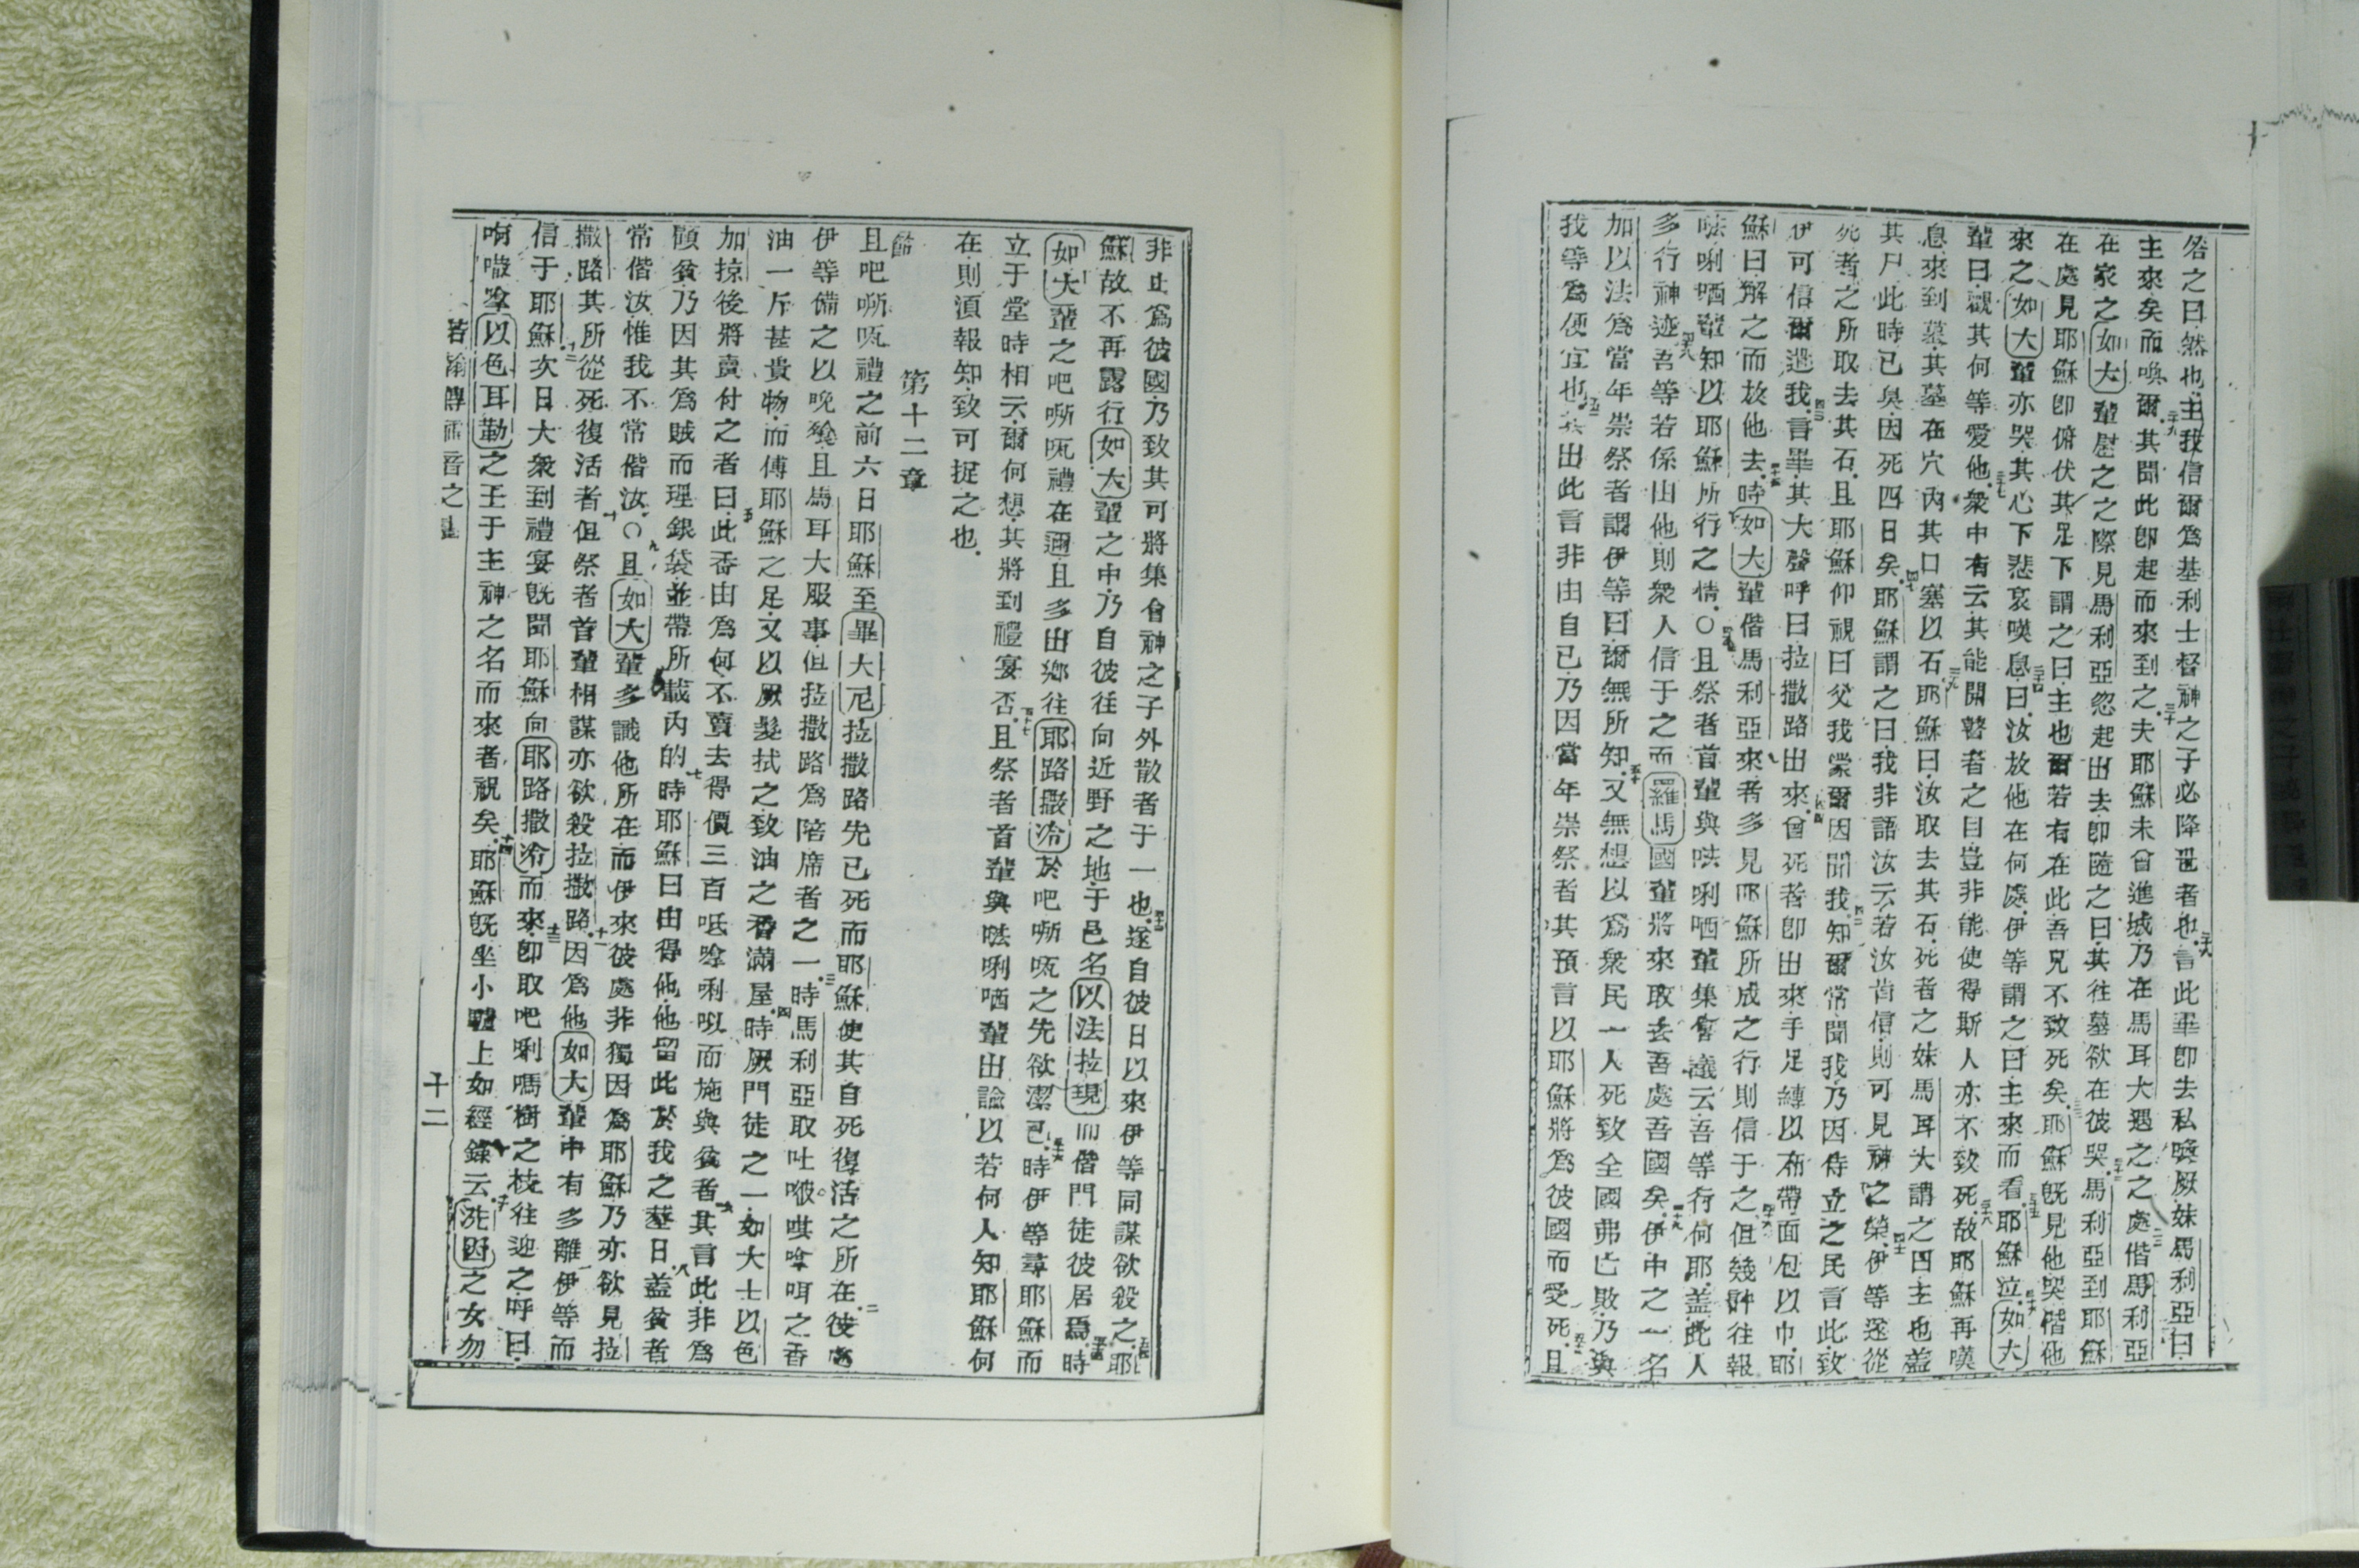 答之曰然也主我信爾爲基利士督神之子必降世者也言此畢卽去私喚厥妹馬利亞曰
主來矣而喚爾其聞此卽起而來到之夫耶穌未曾進城乃在馬耳大遇之之處偕馬利亞
在家之如大輩慰之之際見馬利亞忽起出去卽隨之曰其往墓欲在彼哭馬利亞到耶穌
在處見耶穌卽俯伏其足下謂之曰主也爾若有在此吾兄不致死矣耶穌旣見他哭偕他
來之如大輩亦哭其心下悲哀嘆息曰汝放他在何處伊等謂之曰主來而看耶穌泣如大
輩曰觀其何等愛他衆中有云其能開瞽者之目豈非能使得斯人亦不致死故耶穌再嘆
息來到墓其墓在穴內其口塞以石耶穌曰汝取去其石死者之妹馬耳大謂之曰主也蓋
其尸此時已臭因死四日矣耶穌謂之曰我非語汝云若汝肯信則可見神之榮伊等遂從
死者之所取去其石且耶穌仰視曰父我蒙爾因聞我知爾常聞我乃因侍立之民言此致
伊可信爾遣我言畢其大聲呼曰拉撒路出來曾死者卽出來手足縛以布帶面包以巾耶
穌曰解之而放他去時如大輩偕馬利亞來者多見耶穌所成之行則信于之但幾許往報
𠵽唎哂輩知以耶穌所行之情〇且祭者首輩與𠵽唎哂輩集會議云吾等行何耶蓋此人
多行神迹吾等若係由他則衆人信于之而羅馬國輩將來取去吾處吾國矣伊中之一名
加以法爲當年崇祭者謂伊等曰爾無所知又無想以爲衆民一人死致全國弗亡敗乃與
我等爲便宜也其出此言非由自己乃因當年崇祭者其預言以耶穌將爲彼國而受死且
非止爲彼國乃致其可將集會神之子外散者于一也遂自彼日以來伊等同謀欲殺之耶
穌故不再露行如大輩之中乃自彼往向近野之地于邑名以法拉現而偕門徒彼居焉時
如大輩之吧嘶㕶禮在邇且多由鄉往耶路撒冷於吧嘶㕶之先欲潔己時伊等尋耶穌而
立于堂時相云爾何想其將到禮宴否且祭者首輩與𠵽唎哂輩出諭以若何人知耶穌何
在則須報知致可捉之也
第十二章
且吧嘶㕶禮之前六日耶穌至畢大尼拉撒路先已死而耶穌使其自死復活之所在彼處
伊等備之以晚餐且馬耳大服事但拉撒路爲陪席者之一時馬利亞取吐㖿哄㖮咡之香
油一斤甚貴物而傅耶穌之足又以厥髮拭之致油之香滿屋時厥門徒之一如大士以色
加掠後將賣付之者曰此香由爲何不賣去得價三百呧㖮唎吆而施與貧者其言此非爲
顧貧乃因其爲賊而理銀袋並帶所載內的時耶穌曰由得他他留此於我之塟日蓋貧者
常偕汝惟我不常偕汝〇且如大輩多識他所在而伊來彼處非獨因爲耶穌乃亦欲見拉
撒路其所從死復活者但祭者首輩相謀亦欲殺拉撒路因爲他如大輩中有多離伊等而
信于耶穌次日大衆到禮宴旣聞耶穌向耶路撒冷而來卽取吧唎嗎樹之枝往迎之呼曰
㖿㗭㖮以色耳勒之王于主神之名而來者祝矣耶穌旣坐小驢上如經錄云先因之女勿
若翰傳福音之書
十二